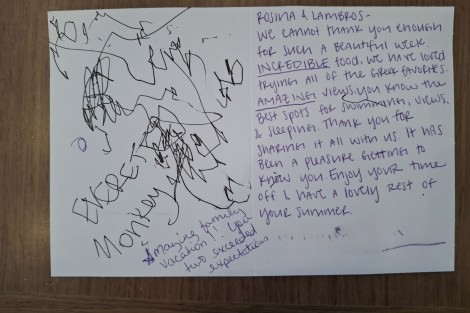 ROSINA & LAMBROS -
WE CANNOT THANK YOU ENOUGH
FOR SUCH A BEAUTIFUL WEEK.
INCREDIBLE FOOD, WE HAVE LOVED
TRYING ALL OF THE GREEK FAVORITES.
AMAZING VIEWS. YOU KNOW THE
BEST SPOTS FOR SWIMMING, VIEWS,
& SLEEPING. THANK YOU FOR
SHARING IT ALL WITH US. IT HAS
BEEN A PLEASURE GETTING TO
KNOW YOU. ENJOY YOUR TIME
OFF & HAVE A LOVELY REST OF
YOUR SUMMER.
Monkey
Amazing family
vacation! You
two exceeded
expectations